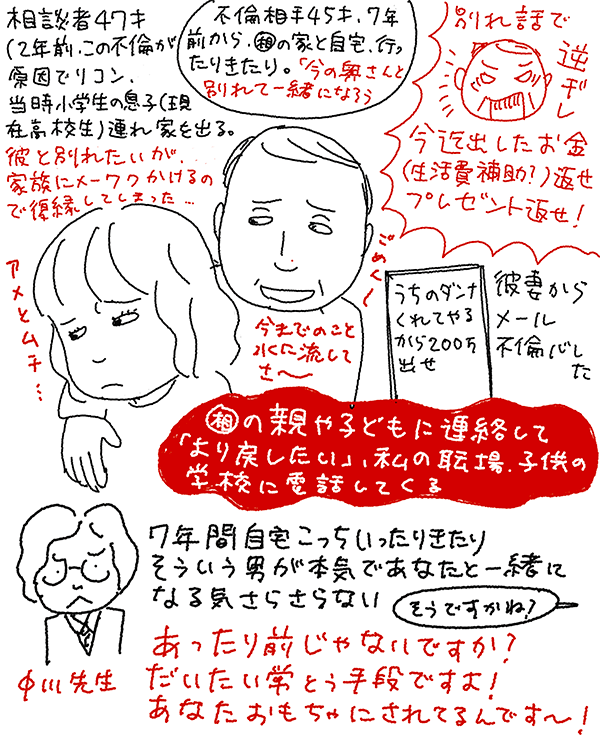 相談者47才
(2年前、この不倫が
原因でリコン、
当時小学生の息子(現
在高校生)連れ家を出る。
彼と別れたいが、
家族にメーワクかけるの
で復縁してしまった…
不倫相手45才、7年
前から、相の家と自宅、行っ
たりきたり。「今の奥さんと
別れて一緒になろう
別れ話で
逆ギレ
今迄出したお金
(生活費補助?)返せ
プレゼント返せ!
アメとムチ…
ごめく〜
今までのこと
水に流して
さ〜
うちのダンナ
くれてやる
から200万
出せ
彼妻から
メール
不倫バレ
た
相の親や子どもに連絡して
「より戻したい」、私の職場、子供の
学校に電話してくる
7年間自宅こっちいったりきたり
そういう男が本気であなたと一緒に
なる気さらさらない
そうですかね?
あったり前じゃないですか?
だいたい常とう手段ですよ!
あなたおもちゃにされてるんです〜!
中川先生